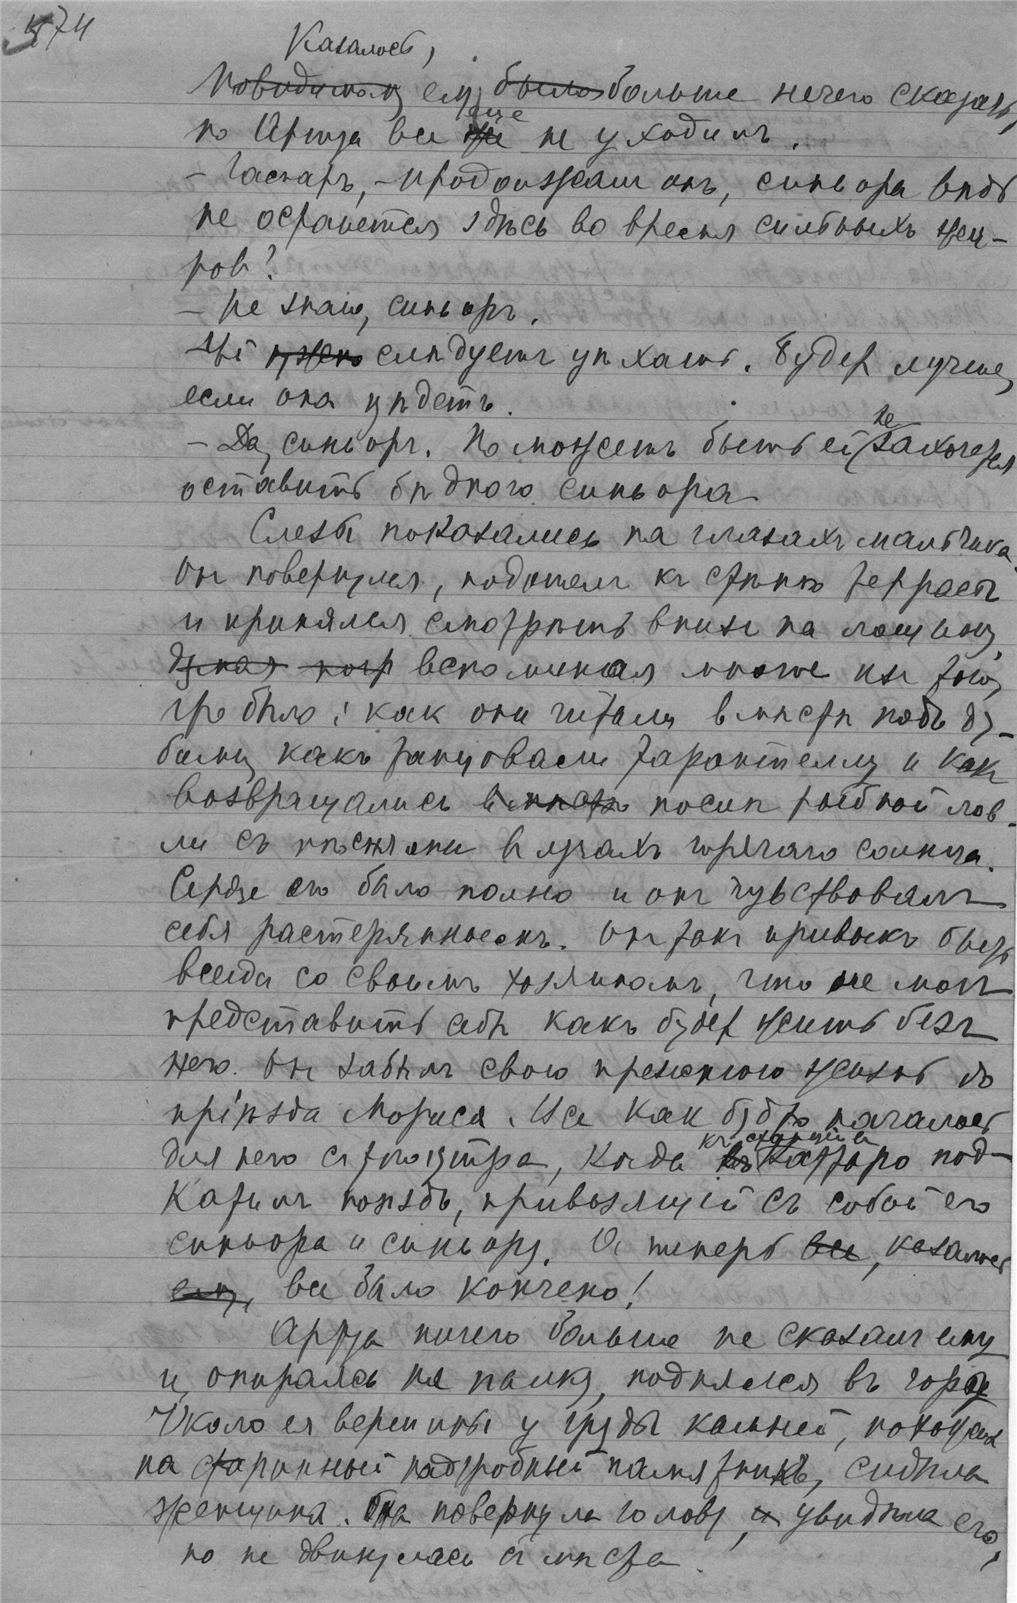 574
Казалось,
Повидимому ему было больше нечего сказать,
но Артуа все же еще не уходилъ.
– Гаспаръ, – продолжалъ онъ, синьора ведь
не останется здѣсь во время сильныхъ жа-
ровъ?
– Не знаю, синьоръ.
– Ей нужно слѣдуетъ уѣхать. Будет лучше,
если она уѣдетъ.
– Да, синьоръ. Но можетъ быть ей не захочется
оставить бѣднаго синьора
Слезы показались на глазахъ мальчика.
Он повернулся, подошелъ къ стѣнѣ террасы
и принялся смотрѣть внизъ на лощину,
вспоминая многое изъ того,
что было: как они читали вмѣстѣ подъ ду-
бами, какъ танцовали тарантеллу и какъ
возвращались вмѣстѣ послѣ рыбной лов-
ли съ пѣснями в лучахъ горячаго солнца.
Сердце его было полно и онъ чувствовалъ
себя растеряннымъ. Он такъ привыкъ быть
всегда со своимъ хозяиномъ, что не могъ
представить себѣ какъ будет жить безъ
него. Он забылъ свою прежнюю жизнь до
пріѣзда Мориса. Все как будто началось
для него с того утра, когда въ къ станціи Каттаро под-
катилъ поѣздъ, привозящій съ собой его
синьора и синьору. А теперь все, казалось
ему, все было кончено!
Артуа ничего больше не сказалъ ему
и, опираясь на палку, поднялся въ гору
Около ея вершины у груды камней, похожей
на старинный надгробный памятникъ, сидѣла
женщина. Она повернула голову, и увидѣла его,
но не двинулась съ мѣста